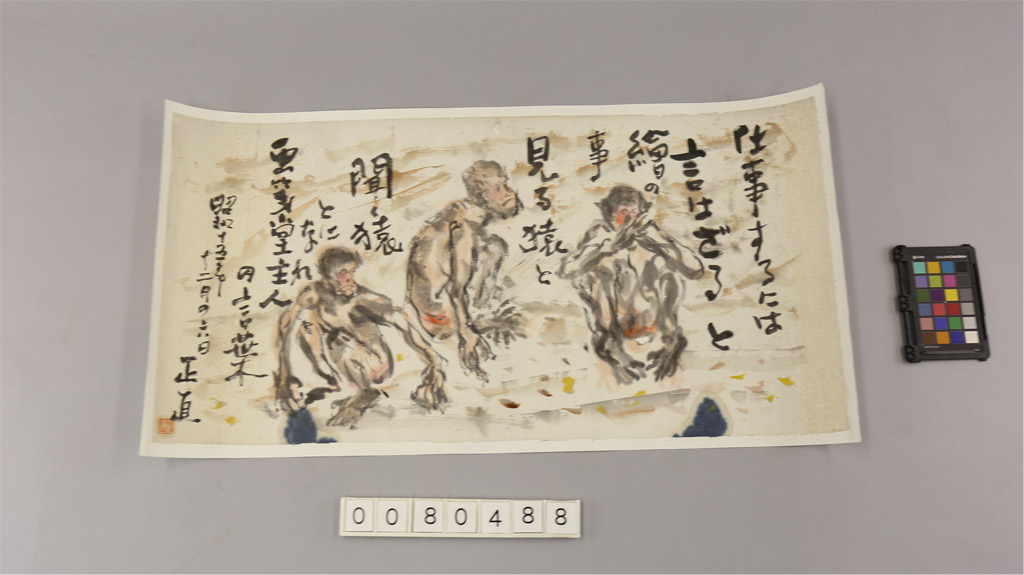 仕事するには
言はざると
繪の
事
見る猿と
聞く猿
とに
なれ
主人
の言葉
昭和十五年
十二月の六日
正直
0080488